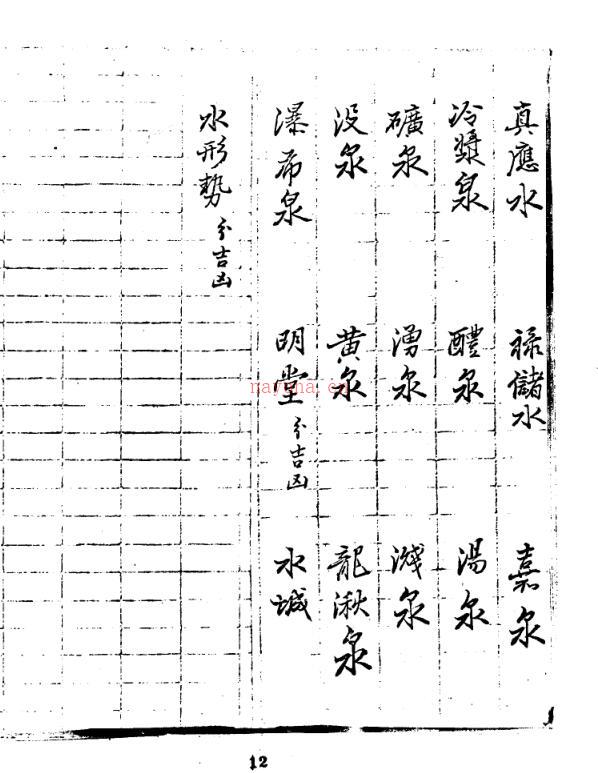 真應水 祿儲水 嘉泉
冷漿泉 醴泉 湯泉
礦泉 湧泉 濺泉
没泉 黄泉 龍湫泉
瀑布泉 明堂 分吉凶 水城
水形勢 分吉凶
12